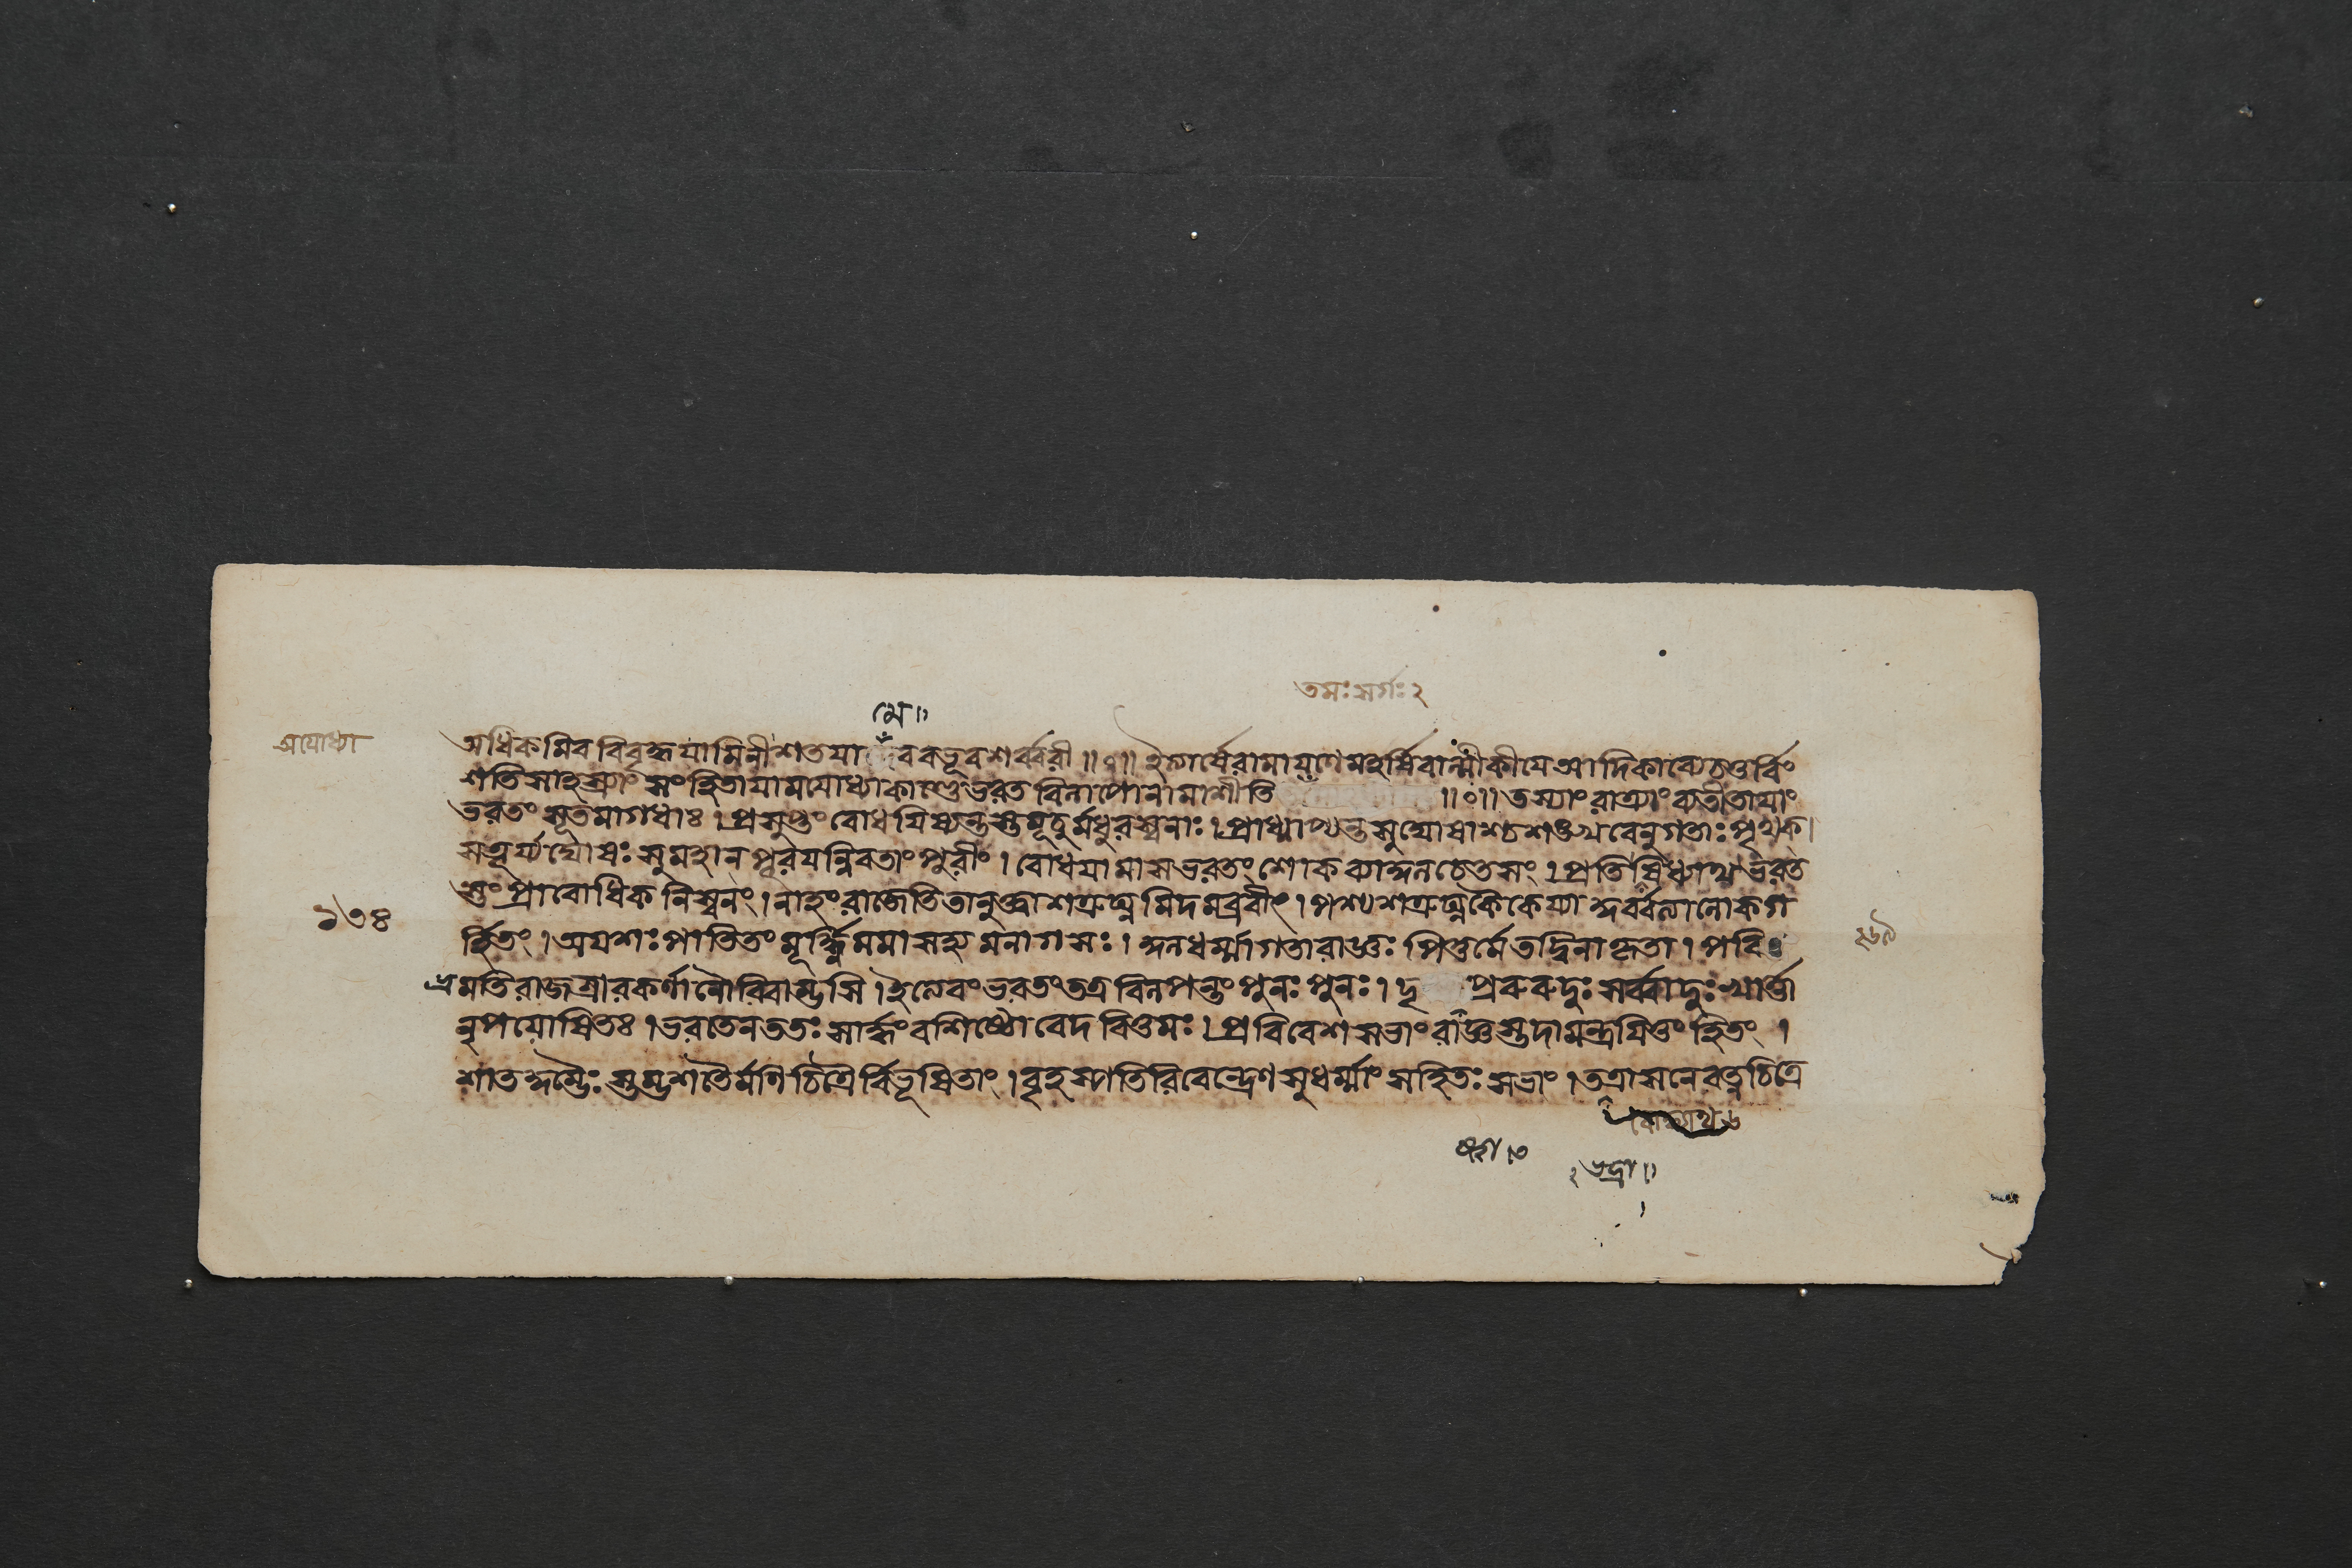 তমঃ সর্গঃ ২
মে॥
অযোধ্যা
অধিকমিব বিবৃহ্য যামিনী শতযা বব বভূব শর্ব্বরী ॥০॥ ইত্যার্ষে রামাযণে মহর্ষিবাল্মীকীযে আদিকাব্যে চতুর্বিং
শতিসাহস্র্যাং সংহিতাযামযোধ্যাকাণ্ডে ভরতবিলাপো নামাশীতি ॥০॥ তস্যাং রাত্র্যাং ব্যতীতাযাং
ভরতং সূতমাগধাঃ । প্রসুপ্তং বোধযিষ্যন্তস্তুষ্টুবুর্মধুরস্বনাঃ । প্রাধ্মাপ্যন্ত সুঘোষাশ্চ শঙ্খ বেনুগতাঃ পৃথক্।
সতূর্য্যঘোষঃ সুমহান পূরযন্নিবতাং পুরীং । বোধযামাস ভরতং শোকব্যাকুলচেতসং । প্রতিষিধ্যাথ ভরত
স্তং প্রাবোধিকনিস্বনং । নাহং রাজেতি তানুক্ত্বা শত্রুঘ্নমিদমব্রবীৎ । পশ্য শত্রুঘ্ন কৈকেয্যা কুর্ব্বত্যা লোকগ
র্হিতং । অযশঃ পাতিতং মূর্দ্ধ্নি মমাসহ্যমনাগসঃ । কুলধর্ম্মাগতা রাজ্ঞঃ পিতুর্মে তদ্বিনাকৃতা । পরি
১৩৪
ভ্রমতি রাজশ্রীরকর্ণা নৌরিবাম্ভসি । ইত্যেবং ভরতং তত্র বিলপন্তং পুনঃ পুনঃ । দৃ প্ররুরুদুঃ সর্ব্বা দুঃখার্ত্তা
নৃপযোষিতঃ । ভরতেন ততঃ সার্দ্ধং বশিষ্ঠো বেদবিত্তমঃ । প্রবিবেশ সভাং রাজ্ঞস্তদামন্ত্রযিতুং হিতং ।
শাতকুম্ভৈঃ স্তম্ভশতৈর্মণিচিত্রৈর্বিভূষিতাং । বৃহস্পতিরিবেন্দ্রেণ সুধর্ম্মাং সহিতঃ সভাং । তত্রাসনে রত্নচিত্রে
২ ভদ্রা॥